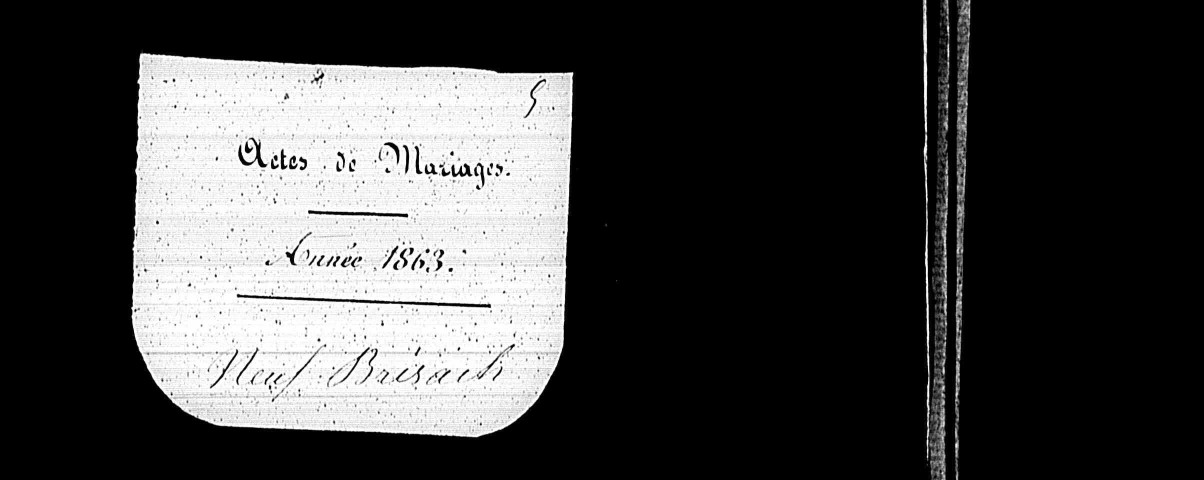 5
Actes de Mariages.
Année 1863.
Neuf Brisach